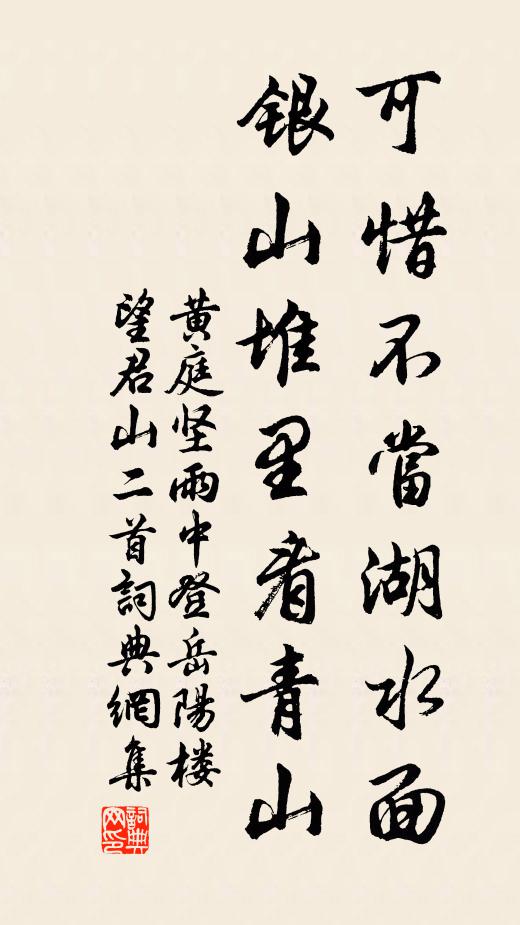 可惜不當湖水面
銀山堆里看青山
黄庭坚雨中登岳陽楼
望君山二首詞典網集
詞典網印